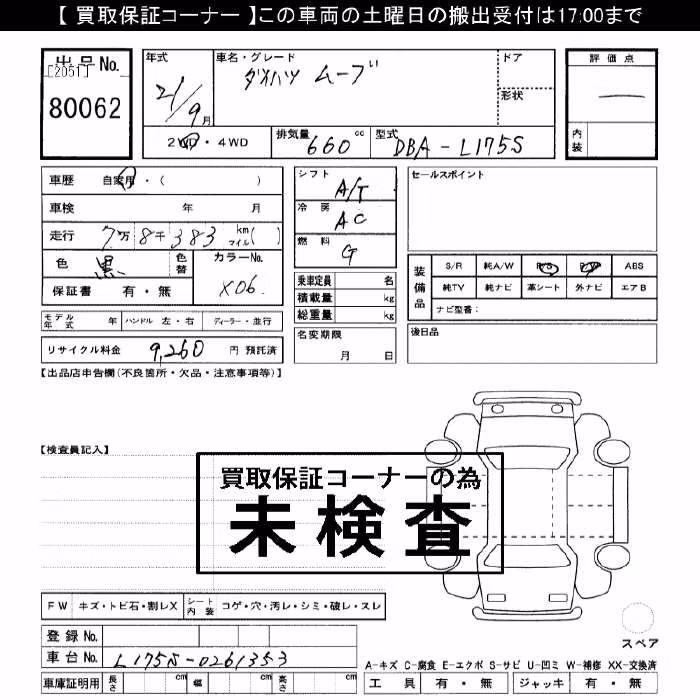 【 買取保証コーナー 】この車両の土曜日の搬出受付は17:00まで
出品No.
[2051]
80062
年式
21/9月
車名・グレード
ダイハツ ムーブ
ドア
形状
評価点
内装
2WD・4WD
排気量 660 cc
型式 DBA-L175S
車歴 自家用・( )
車検 年 月
走行 7万8千383 km マイル( )
色 黒
色替
カラーNo.
X06.
保証書 有・無
シフト A/T
冷房 AC
燃料 G
乗車定員 名
積載量 kg
総重量 kg
名変期限
月 日
セールスポイント
装備品
S/R 純A/W P/S P/W ABS
純TV 純ナビ 革シート 外ナビ エアB
ナビ型番:
後日品
モデル年式 年 ハンドル 左・右 ディーラー・並行
リサイクル料金 9,260 円 預託済
【出品店申告欄(不良箇所・欠品・注意事項等)】
【検査員記入】
買取保証コーナーの為
未検査
FW キズ・トビ石・割レX シート内装 コゲ・穴・汚レ・シミ・破レ・スレ
登録No.
車台No. L175S-0261353
車庫証明用 長さ cm 幅 cm 高さ cm
スペア
A-キズ C-腐食 E-エクボ S-サビ U-凹ミ W-補修 XX-交換済
工具 有・無 ジャッキ 有・無